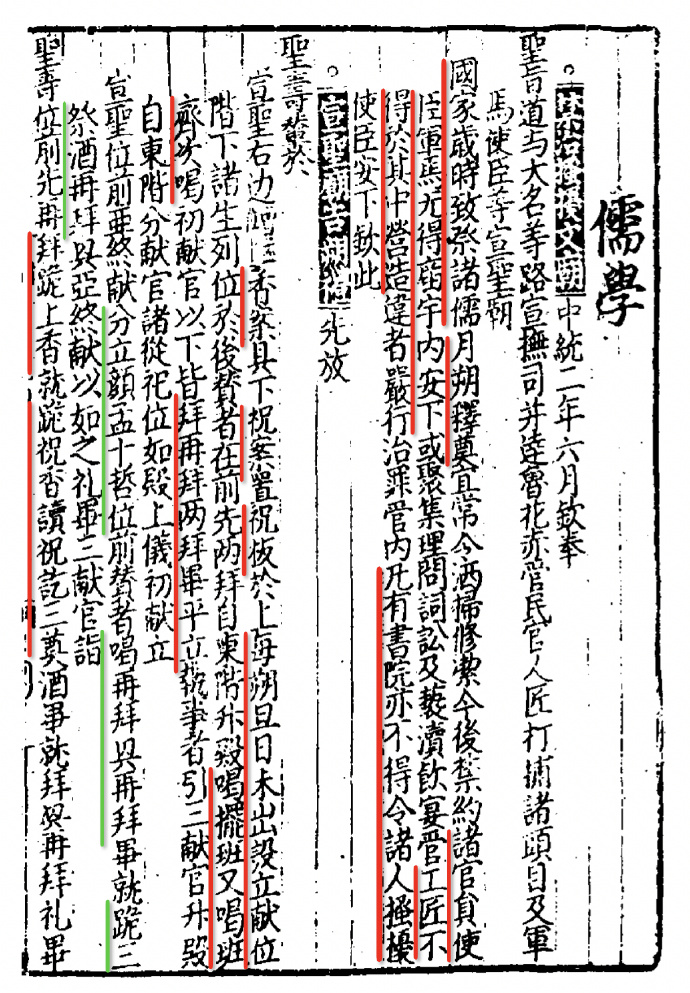 儒學
。文廟 中統二年六月欽奉
聖旨道与大名等路宣撫司并達魯花赤管民官人匠打捕諸頭目及軍
馬使臣等宣聖廟
國家歲時致祭諸儒月朔釋奠宜常令洒掃修潔今後禁約諸官員使
臣軍馬无得廟宇内安下或聚集理問詞訟及褻瀆飲宴管工匠不
得於其中營造違者嚴行治罪管内凡有書院亦不得令諸人搔擾
使臣安下欽此
。宣聖廟告朔禮儀 先放
聖壽贊於
宣聖右边香祭具下祝案置祝板於上每朔旦日未出設立献位
階下諸生列位於後贊者在前先兩拜自東階升殿喝擺班又喝班
齊次喝初献官以下皆拜再拜两拜畢平立執事者引三献官升殿
自東階分献官諸從祀位如殿上儀初献立
宣聖位前亞終献分立顔孟十哲位前贊者唱再拜興再拜畢就跪三
祭酒再拜興亞終献以如之礼畢三献官詣
聖壽位前先再拜跪上香就跪祝香讀祝訖三奠酒畢就拜興再拜礼畢